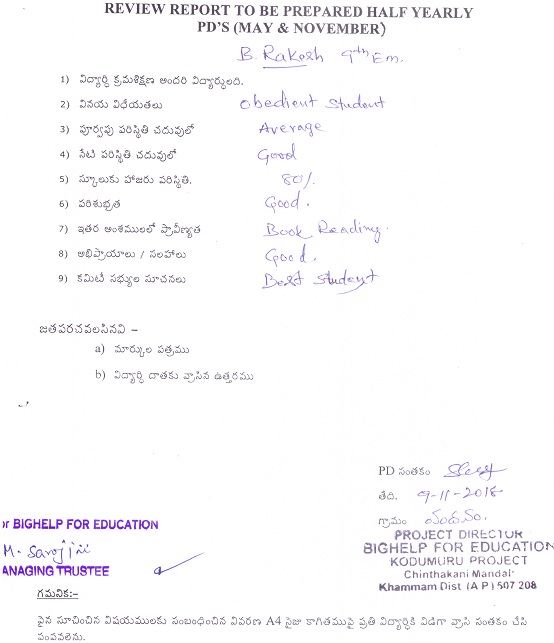 REVIEW REPORT TO BE PREPARED HALF YEARLY
PD'S (MAY & NOVEMBER)
B. Rakesh 9th Em.
1) విద్యార్ధి క్రమశిక్షణ అందరి విద్యార్ధులది.
2) వినయ విధేయతలు obedient student
3) పూర్వపు పరిస్థితి చదువులో Average
4) నేటి పరిస్థితి చదువులో Good
5) స్కూలుకు హాజరు పరిస్థితి. 80%
6) పరిశుభ్రత Good.
7) ఇతర అంశములలో ప్రావీణ్యత Book Reading.
8) అభిప్రాయాలు / సలహాలు Good.
9) కమిటీ సభ్యుల సూచనలు Best Student
జతపరచవలసినవి –
a) మార్కుల పత్రము
b) విద్యార్ధి దాతకు వ్రాసిన ఉత్తరము
PD సంతకం
తేది. 9-11-2018
గ్రామం వందనం.
or BIGHELP FOR EDUCATION
M. Sarojini
ANAGING TRUSTEE
PROJECT DIRECTUR
BIGHELP FOR EDUCATION
KODUMURU PROJECT
Chinthakani Mandal
Khammam Dist (A P) 507 208
గమనిక:-
పైన సూచించిన విషయములకు సంబంధించిన వివరణ A4 సైజు కాగితముపై ప్రతి విద్యార్ధికి విడిగా వ్రాసి సంతకం చేసి
పంపవలెను.